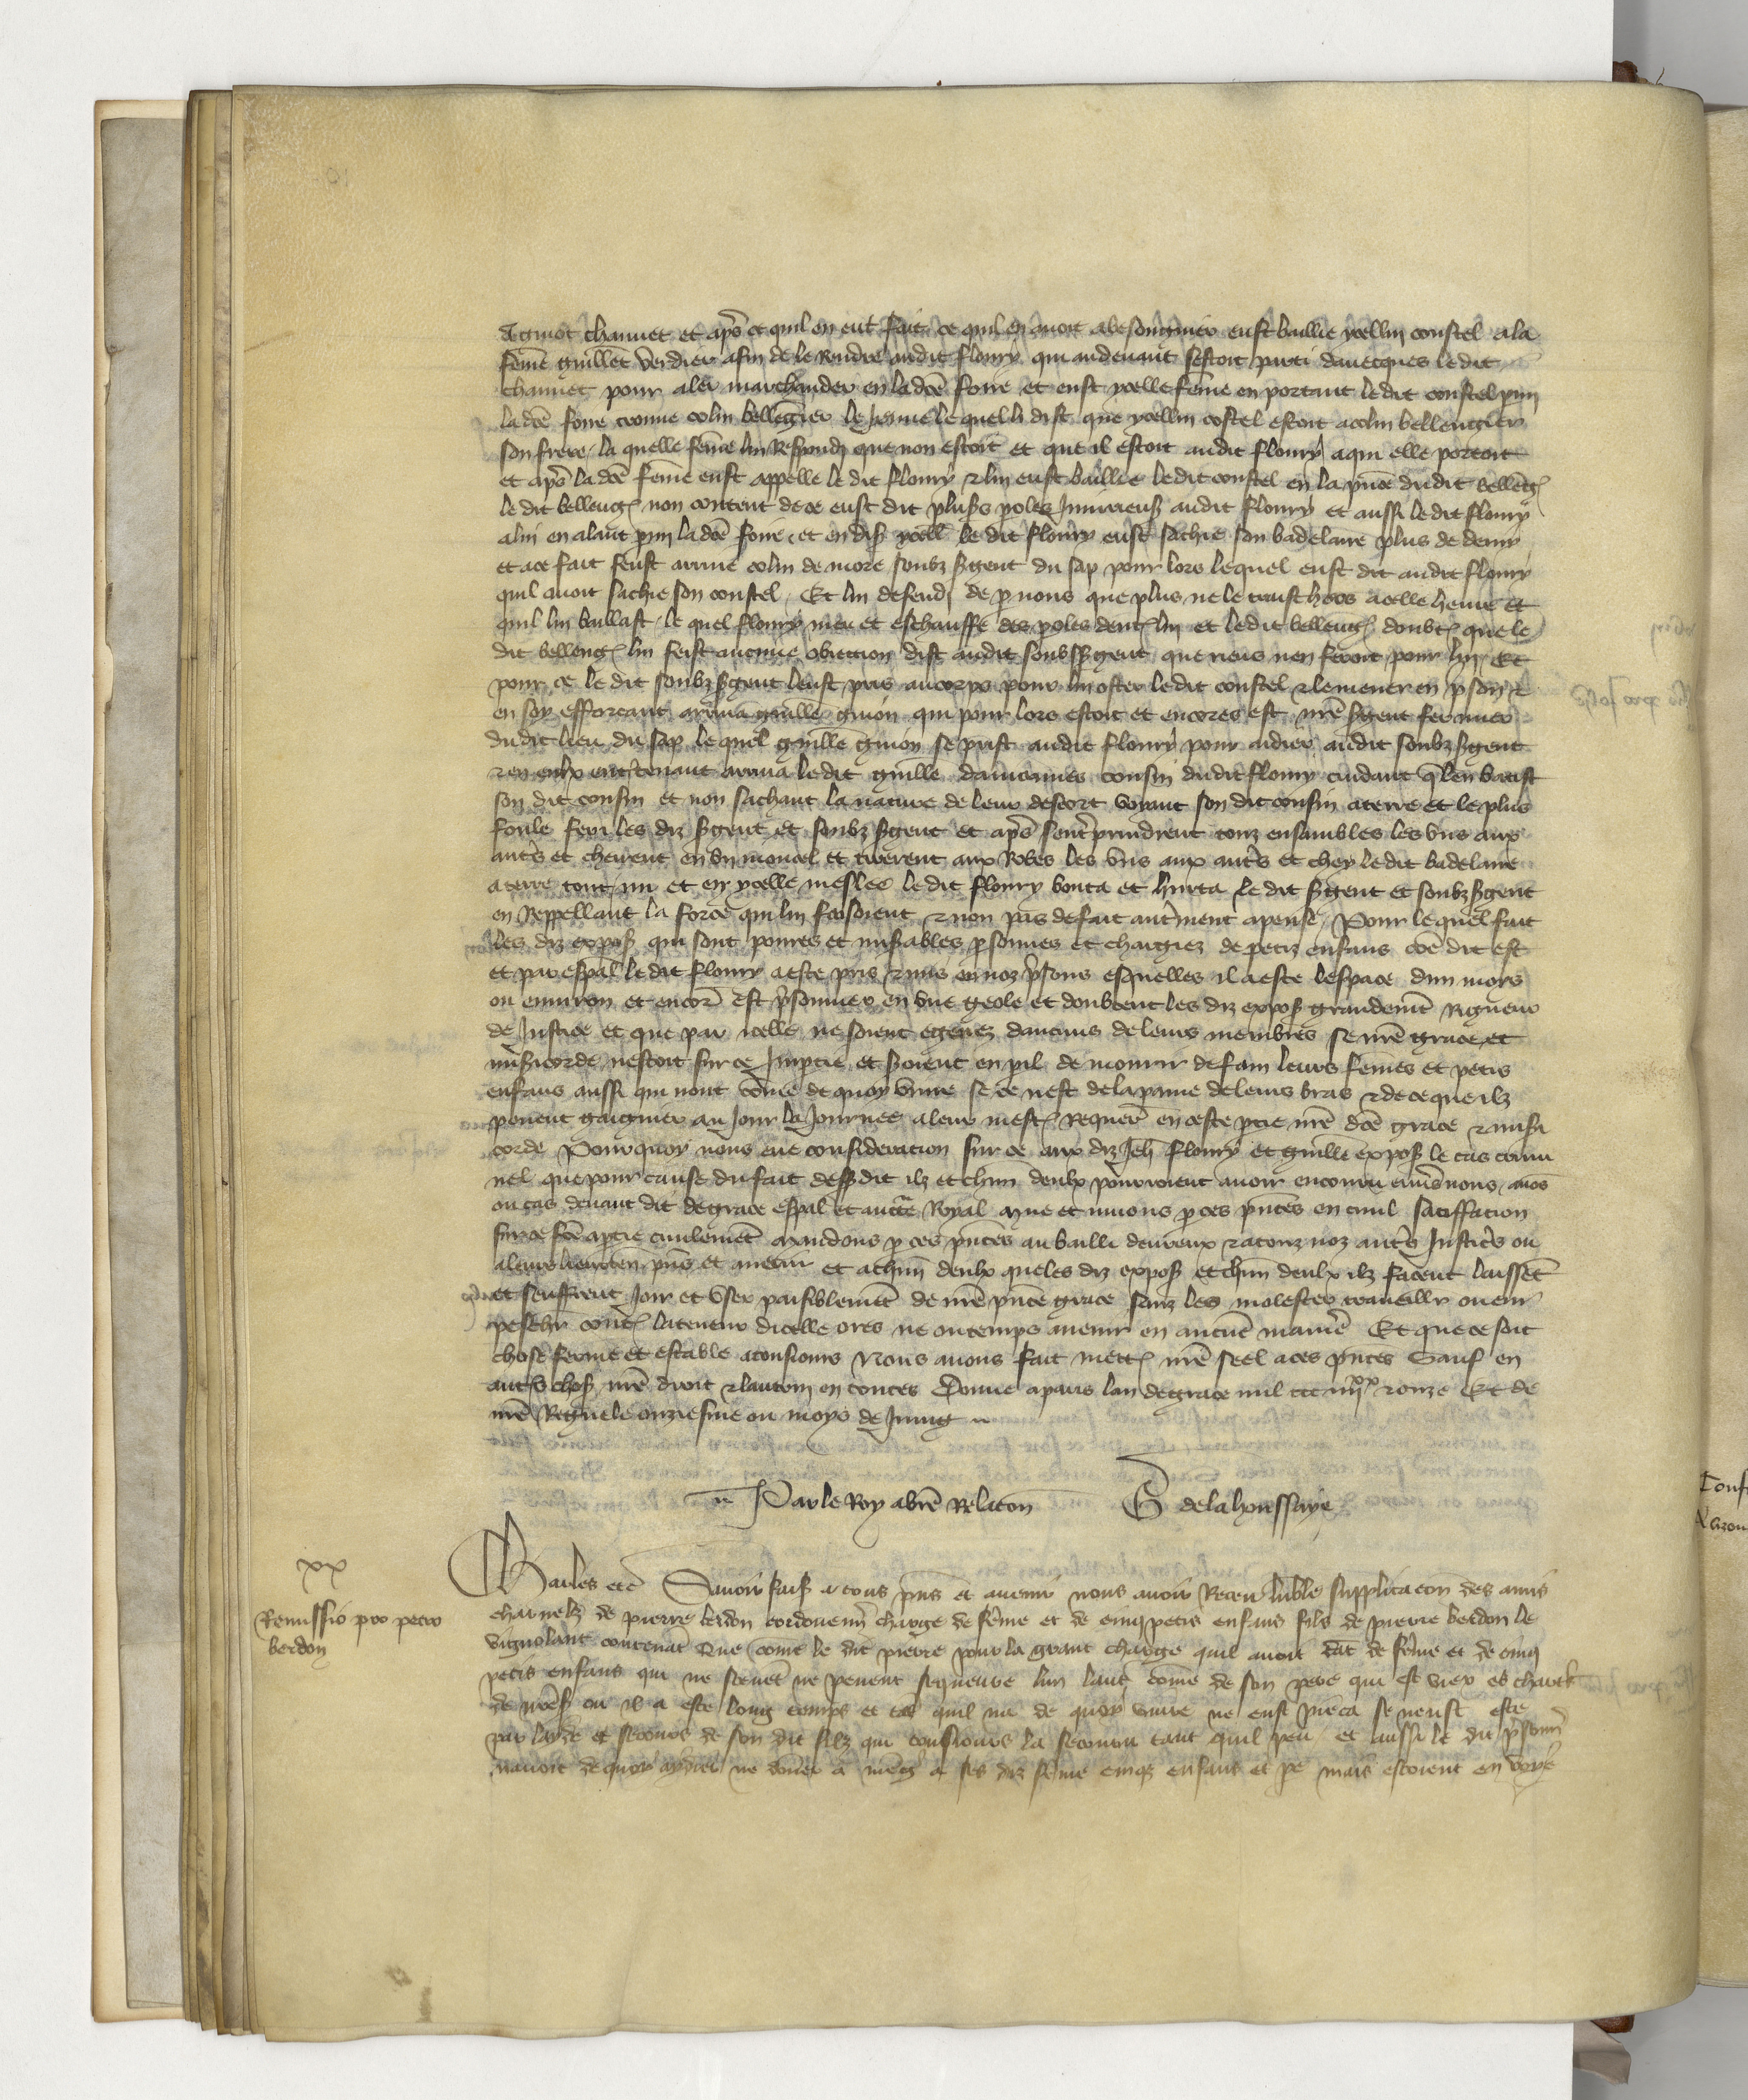 chauvet et aprs ce quil en eut fait ce quil en avoit abesoingnier eust baillie ycellui coustel a la
feme guillet verdier afin de le Rendre audit floury qui audevant sestoit parti davecques ledit
chauvet pour aler marchander en ladce foire et eust ycelle feme en portant ledit coustel pmi
ladce foire trouve colin bellengier le Jeune lequel li dist que ycellui costel estoit acolin bellengier
son frere / la quelle feme lui Respondi que non estoit et que il estoit audit floury aqui elle portoit
et aprs ladce feme eust appelle le dit floury & lui eust baillie ledit coustel en la pnce dudit belleng
le dit belleng non content de ce eust dit plusrs poles Injurieuses audit floury et aussi le dit floury
alui en alant pmi ladce foire / et en dis ycell le dit floury eust sachie son badelaire plus de demy
et ace fait feust arrive colin de more soubz sgent du sap pour lors lequel eust dit audit floury
quil avoit sachie son coustel / Et lui defendi de p nous que plus ne le traisthors acelle heure et
quil lui baillast / le quel floury meu et eschauffe des poles dentr lui et ledit belleng doubt que le
dit belleng lui feist aucune dist audit soubz sgent que riens nen feroit pour lui / Et
pour ce le dit soubz sgent leust pris aucorps pour lui oster ledit coustel & le mener en pson &
en soy efforcant arriva guille guion qui pour lors estoit et encores est nre sgent fermier
dudit lieu du sap lequel guille guion se prist audit floury pour aidier audit soubz sgent
& en eulx entretenant arriva ledit guille cousin dudit floury cuidant q len batist
son dit cousin et non sachant la nature de leur descort voyant son dit cousin aterre et le plus
foule feri les diz sgent et soubz sgent et aprs sentrprindrent touz ensambles les uns aux
autrs et cheirent en un moncel et tirerent aux Robes les uns aux autrs et chey ledit badelaire
aterre tout nu et en ycelle meslee le dit floury bouta et hurta le dit sgent et soubz sgent
en Reppellant la force qui lui faisoient & non pas defait autrment apense / Pour lequel fait
les diz expos qui sont povres et misables psonnes et chargiez de petiz enfans coe dit est
et par espal le dit floury aeste pris & mis en noz prisons esquelles il aeste lespace dun mois
ou environ et encor est psonnier en une geole et doubtent les diz expos grandemt Rigueur
de Justice et que par icelle ne soient egenez daucuns de leurs membres se nre grace et
misicorde nestoit sur ce Imptie et soient en pil de mourir de fain leurs femes et petis
enfans aussi qui nont de quoy vivre se ce nest de la paine de leurs bras & de ce que ilz
pevent gaigner au Jour la Journee aleur mest / Requer en ceste ptie nre dce grace & misi
corde Pourquoy nous eue consideracion sur ce aux diz Jeh floury et guille expos le cas crimi
nel que pour cause du fait dessdit ilz et chun deulx pourroient avoir encouru envers nous avos
ou cas devant dit de grace espal et auctte Royal mue et muons p ces pntes en civil satiffacion
sur ce fce aptie civilement mandons p ces pntes au bailli devreux & atouz noz autrs Justicrs ou
aleurs lieuxten pns et avenir et achun deulx que les diz expos et chun deulx ilz facent laissent
et seuffrent Joir et user paisiblement de nre pnte grace sanz les molester traveillr ou em
peschr contr la teneur dicelle ores ne ou temps avenir en aucune maniere Et que ce soit
chose ferme et estable atousiours Nous avons fait mettr nre seel aces pntes Sauf en
autrs chos nre droit & lautrui en toutes Donne aparis lan de grace mil ccc iiiixx & onze Et de
nre Regne le onziesme ou moys de Juing
Par le Roy a vre Relacon G de la houssaye
xx
Remissio pro petro
berdon
Charles etc Savoir faiss a tous pns et avenir nous avoir Receu lumble supplicacon des amis
charnelz de pierre berdon cordouennr charge de feme et de cinq petis enfans filz de pierre berdon le
contenat Que come le dit pierre pour la grant charge quil avoit tat de feme et de cinq
petis enfans qui ne scevent ne pevent lun lautr come de son pere qui est viex et
ou il a este long temps et tel quil na de quoy vivre ne eust pieca se neust este
par layde et secours de son dit filz qui tousiours la secouru tant quil peu / et aussi le dit prisonnr
navoit de quoy aydier ne donner a mengr a ses diz feme cinq enfans et pe mais estoient en voye